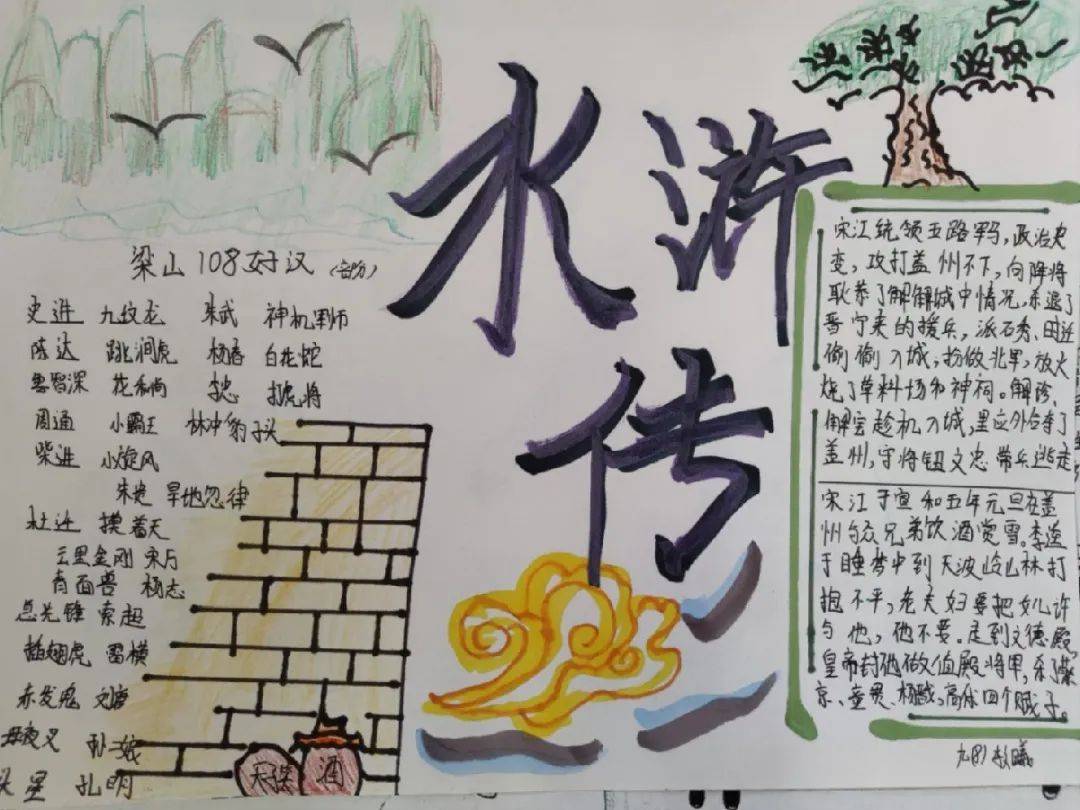 水浒传
梁山108好汉(部分)
史进 九纹龙 朱武 神机军师
陈达 跳涧虎 杨春 白花蛇
鲁智深 花和尚 李忠 打虎将
周通 小霸王 林冲 豹子头
柴进 小旋风
朱贵 旱地忽律
杜迁 摸着天
云里金刚 宋万
青面兽 杨志
急先锋 索超
插翅虎 雷横
赤发鬼 刘唐
母夜叉 孙二娘
头星 孔明
天溪
酒
宋江统领五路军马,政治史
变,攻打盖州不下,向降将
耿恭了解解城中情况,杀退了
晋宁来的援兵,派石秀、时迁
偷偷入城,扮做北军,放火
烧了草料场和神祠。解珍、
解宝趁机入城,里应外合夺了
盖州,守将钮文忠带兵逃走
宋江于宣和五年元旦在盖
州与众兄弟饮酒赏雪。李逵
于睡梦中到天波岭山林打
抱不平,老夫妇要把女儿许
与他,他不要。走到文德殿,
皇帝封他做值殿将军,杀了蔡
京、童贯、杨戬、高俅四个贼子。